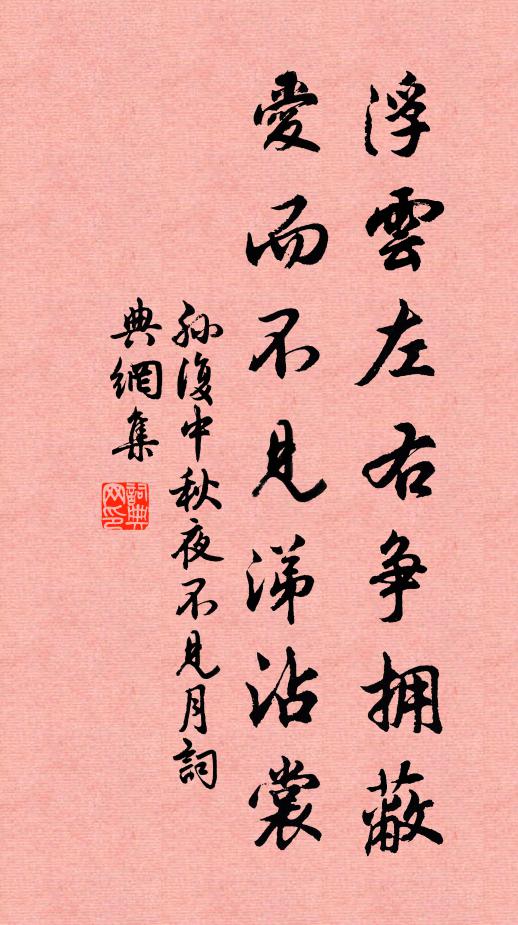 浮雲左右争拥蔽
愛而不見涕沾裳
孙復中秋夜不見月詞
典網集
詞典网印